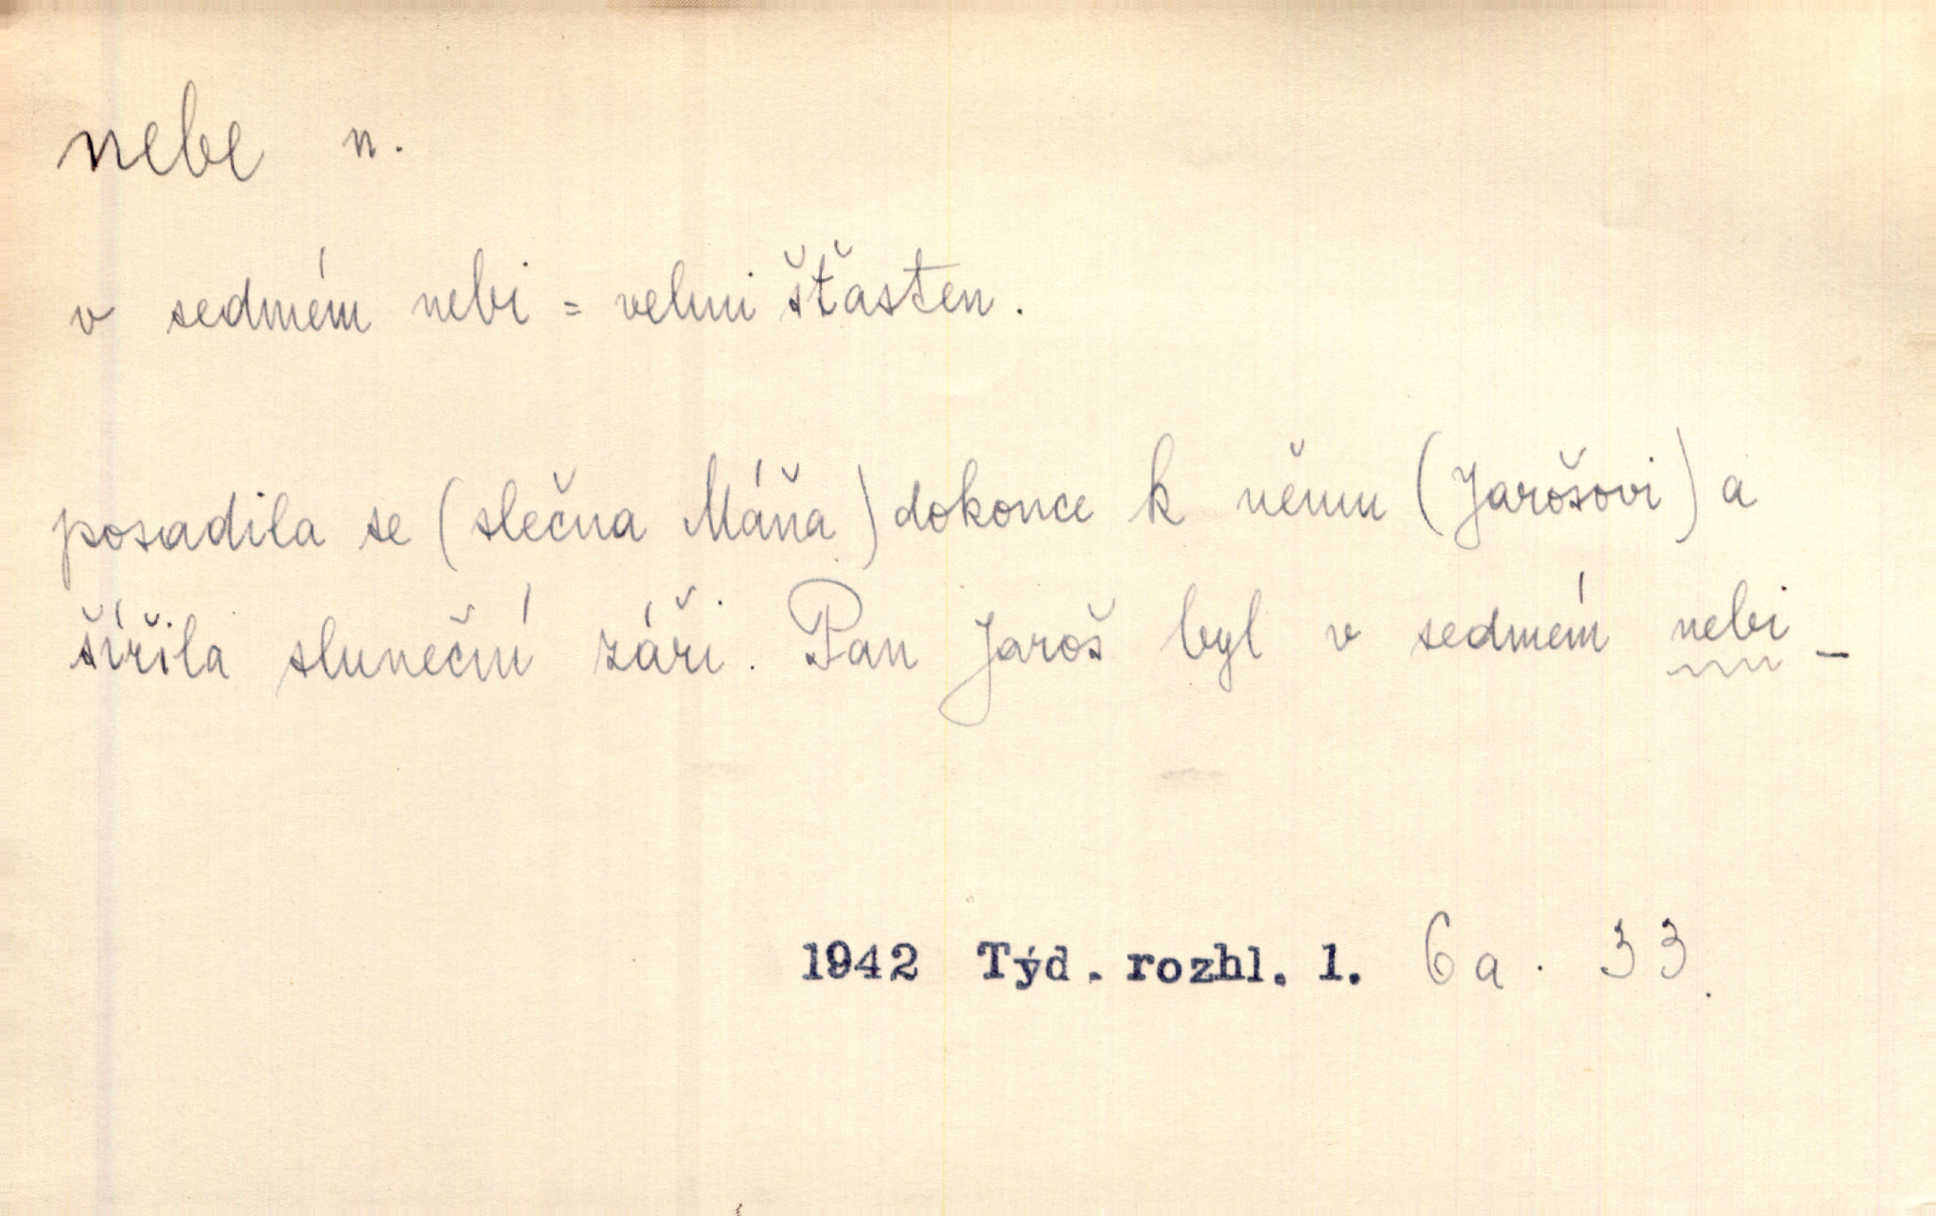 nebe n.
v sedmém nebi = velmi šťasten.
posadila se (slečna Máňa) dokonce k němu (Jarošovi) a
šířila sluneční záři. Pan Jaroš byl v sedmém nebi –
1942 Týd. rozhl. 1. 6a. 33.